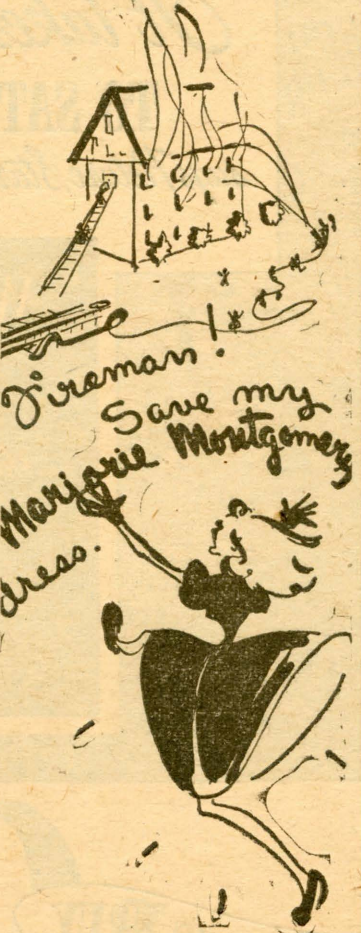 Fireman!
Save my
Marjorie Montgomery
dress.